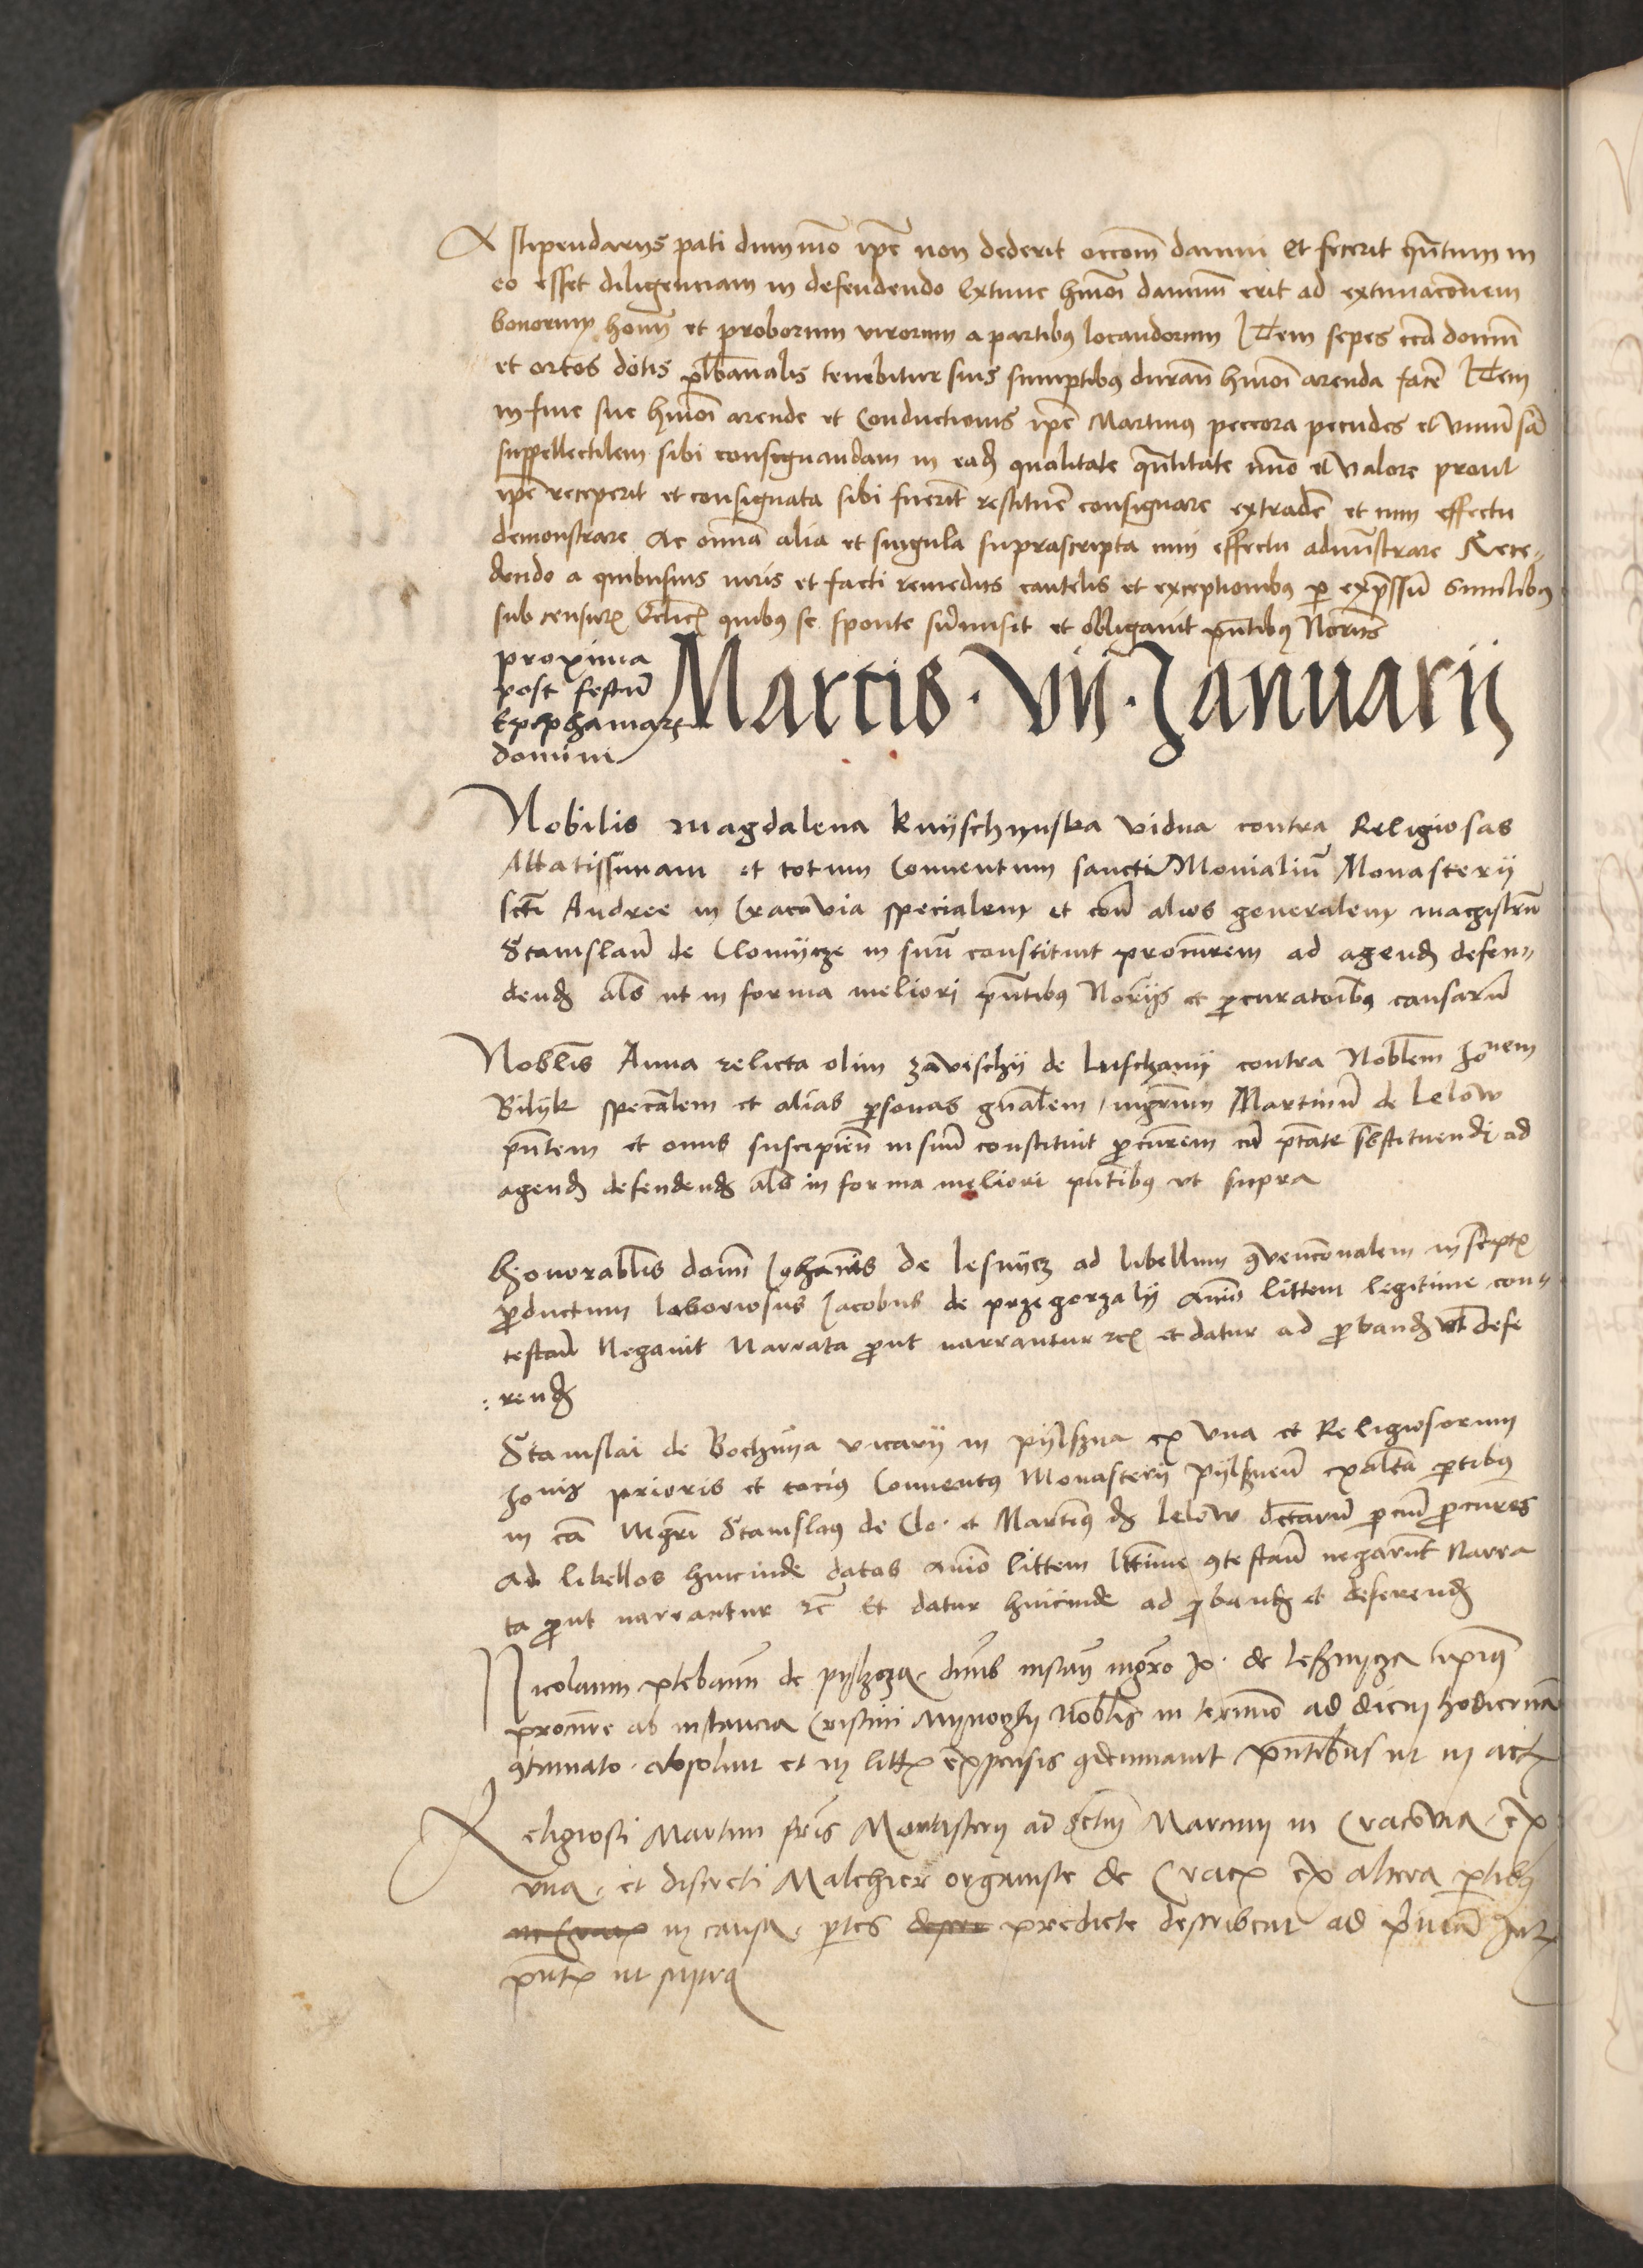 A stipendarijs pati dummo ipe non dederit occom damni Et fecerit qntum in
eo esset diligenciam in defendendo Extunc hmoi damnum erit ad extimaconem
bonorum homn et proborum virorum a partibus locandorum Item sepes circa domum
et ortos dotis plbanalis tenebitur suis sumptibus duran hmoi arenda facere Item
in fine sue hmoi arende et Conductionis ipe Martinus peccora pecudes et vniuersam
suppellectilem sibi consignandam in ead qualitate qntitate nuo et valore prout
ipe receperit et consignata sibi fuerit restituere consignare extradere et cum effectu
demonstrare Ac omnia alia et singula suprascripta cum effectu administrare Rece-
dendo a quibusuis iuris et facti remedijs cautelis et exceptionibus per expressum similibus
sub censuris Eclicis quibus se sponte submisit et obligauit pntibus Norijs
proxima
post festum
Epiphaniarum
domini
Martis · vij · Januarij
Nobilis Magdalena Knyschynska vidua contra Religiosas
Abbatissimam et totum Conuentum sanctiMonialium Monasterij
scti Andree in Cracovia specialem et con alios generalem magistrum
Stanislaum de Clomycze in suum constituit procurem ad agend defen-
dend als ut in forma meliori pntibus Norijs et procuratoribus causarum
Noblis Anna relicta olim Zavischij de Luschanij contra Noblem Jonem
Bilijk specalem et alias personas gnalem mgrum Martinum de Lelow
pntem et onus suscipien in suum constituit procurem cum ptate sbstituendi ad
agend defendend als in forma meliori pntibus vt supra
Honorablis domini Johannis de lesnijcz ad libellum convenconalem in scriptis
productum laboriosus Jacobus de przegorzalij animo littem legitime con-
testan Negauit Narrata prout narrantur etc et datur ad proband vel defe
rend
Stanislai de Bochnya vicarij in pijlszna ex vna et Religiosorum
Jonis prioris et tocius Conuentus Monasterij Pijlsnen ex altera partibus
in ca Mgri Stanislaus de Clo · et Martinus de Lelow dictarum parcium procures
ad libellos hincinde datos animo littem lttime contestan negarunt Narra
ta prout narrantur etc Et datur hincinde ad proband et deferend
Nicolaum plebanum de pylzcza · dnus instan mgro Jo · de leßnycza ipius
procure ab instancia Cristini Mynoghy Noblis in termino ad diem hodiernam
continuato · absoluit et in littis expensis condemnauit pntibus ut in actis
Religiosi Martini fris Monasterij ad sctum Marcum in Cracovia · ex
vna · et discreti Malchier organiste de Crac ex altera partibus
in Crac in causa · partes descr predicte describent ad primam Jur
pnt ut supra